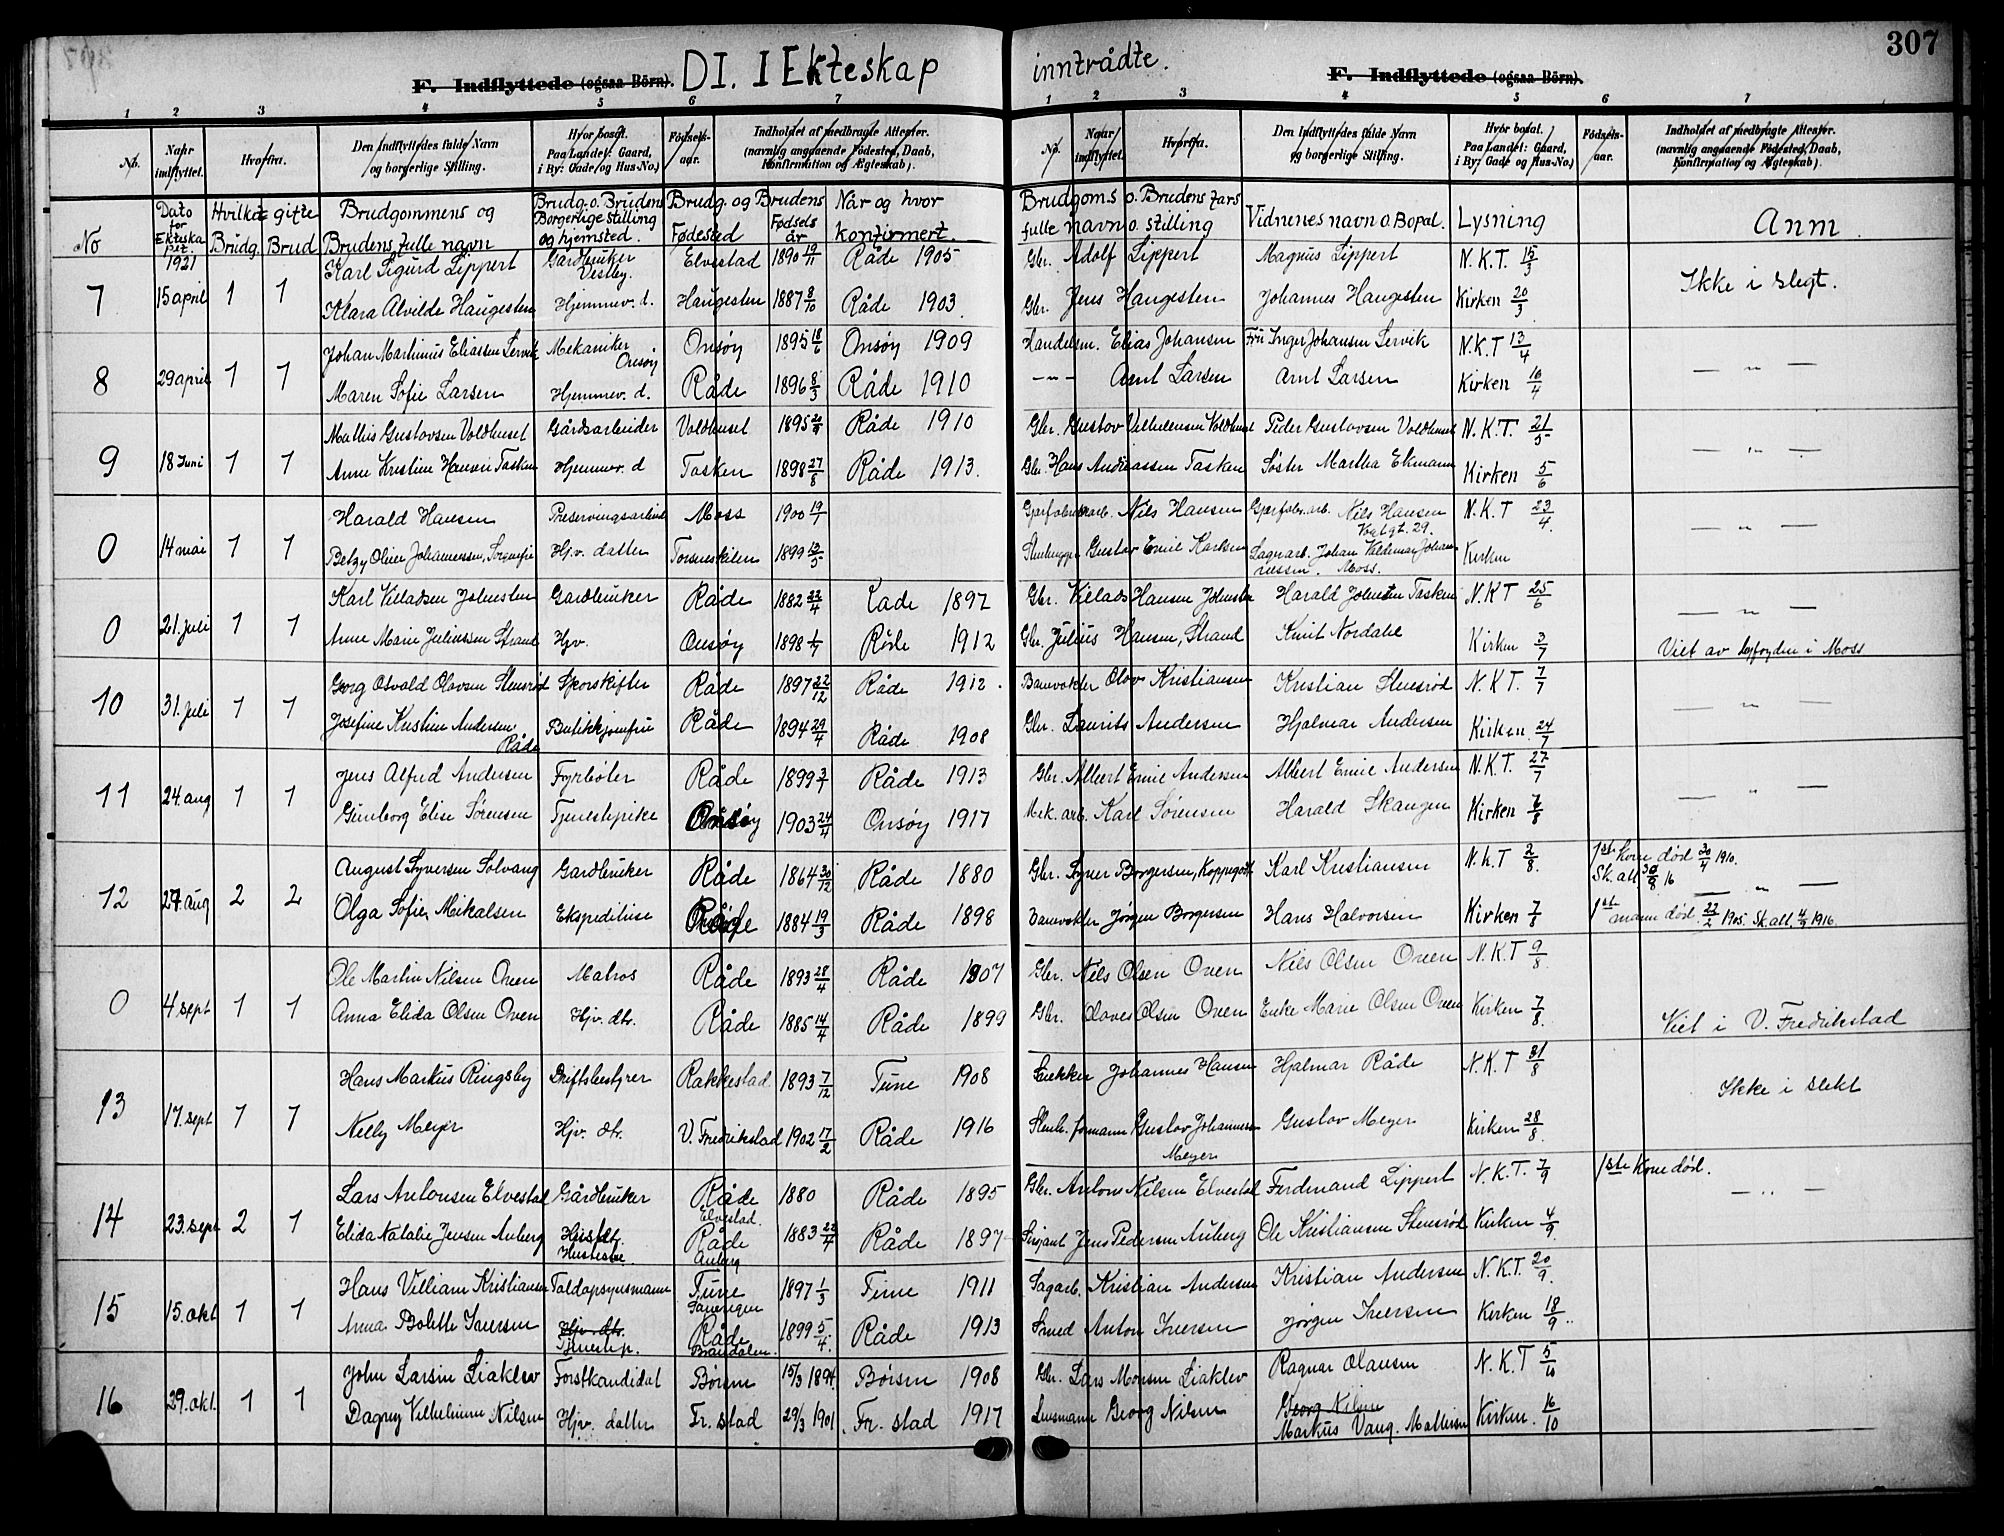 307
F. Indflyttede (ogsaa Börn). DI. I Ekteskap inntrådte. F. Indflyttede (ogsaa Börn).
1 2 3 4 5 6 7 1 2 3 4 5 6 7
No. Naar indflyttet. Hvorfra. Den Indflyttedes fulde Navn og borgerlige Stilling. Hvor bosat. Paa Landet: Gaard, i By: Gade og Hus-No.) Födsels-aar. Indholdet af medbragte Attester. (navnlig angaaende Födested, Daab, Konfirmation og Ægteskab).
No. Naar indflyttet. Hvorfra. Den Indflyttedes fulde Navn og borgerlige Stilling. Hvor bosat. Paa Landet: Gaard, i By: Gade og Hus-No.) Födsels-aar. Indholdet af medbragte Attester. (navnlig angaaende Födested, Daab, Konfirmation og Ægteskab).
No Dato for Ekteskapet. Hvilket gifte Brudg. Brud Brudgommens og Brudens fulle navn Brudg. o. Brudens Borgerlige stilling og hjemsted. Brudg. og Brudens Fødested Fødsels år Når og hvor konfirmert.
Brudgoms o. Brudens fars fulle navn o. stilling Vidnenes navn o. Bopæl. Lysning Anm.
1921
Karl Sigurd Lippert Gardbruker Vestby. Elvestad 1890 19/11 Råde 1905 Gbr. Adolf Lippert Magnus Lippert N.K.T. 15/3
7 15 april 1 1 Klara Alvilde Haugesten Hjemmev. d. Haugesten 1887 8/10 Råde 1903. Gbr. Jens Haugesten Johannes Haugesten Kirken 20/3 Ikke i slegt.
Johan Martinius Eliassen Lervik Mekaniker Onsøy Onsøy 1895 18/6 Onsøy 1909 Handelsm. Elias Johansen Fru Inger Johansen Lervik N.K.T 13/4
8 29 april 1 1 Maren Sofie Larsen Hjemmev. d. Råde 1896 8/3 Råde 1910 — " — Arnt Larsen Arnt Larsen Kirken 10/4 — " —
Mathis Gustavsen Voldhuset Gårdsarbeider Voldhuset 1895 Råde 1910 Gbr. Gustav Vilhelmsen Voldhuset Peder Gustavsen Voldhuset N.K.T. 21/5
9 18 Juni 1 1 Anne Kristine Hansen Tasken Hjemmev. d Tasken 1898 27/8 Råde 1913. Gbr. Hans Andreassen Tasken Søster Martha Ekmann Kirken 5/6 — " —
Harald Hansen Moss 1900 Nils Hansen Nils Hansen Vogtgt. 29. N.K.T 23/4
0 14 mai 1 1 Betzy Oline Johannessen, Hjv. datter Torsneskilen 1899 Gustav Emil Karlsen Lagerarb. Johan Valdemar Johannessen. Moss. Kirken — " —
Karl Villadsen Jonsten Gardbruker Råde 1882 Råde 1897 Gbr. Villads Hansen Harald Tasken N.K.T 25/6
0 21. juli 1 1 Anne Marie Juliussen Strand Hjv. Onsøy 1898 Råde 1912 Gbr. Julius Hansen, Strand Knut Nordahl Kirken 3/7 — " — Viet av byfogden i Moss
Georg Osvald Olavsen Stensrød Sporskifter Råde 1897 22/12 Råde 1912. Banevokter Olav Kristiansen Kristian Stensrød N.K.T. 7/7
10 31. juli 1 1 Josefine Kristine Andersen, Råde Butikkjomfru Råde 1894 29/4 Råde 1908 Gbr. Laurits Andersen Hjalmar Andersen Kirken 24/7 — " —
Jens Alfred Andersen Fyrbøter Råde 1899 Råde 1913 Gbr. Albert Emil Andersen Albert Emil Andersen N.K.T. 27/7
11 24. aug 1 1 Gunborg Elise Sørensen Tjenestepike Onsøy 1903 24/4 Onsøy 1917 Mek. arb. Karl Sørensen Harald Skaugen Kirken 7/8 — " —
August Syversen Solvang Gardbruker Råde 1864 30/12 Råde 1880 Gbr. Syver Borgersen, Karl Kristiansen N.K.T 2/8 1ste kone død 30/4 1910. Sk. att 30/8 16
12 27. aug 2 2 Olga Sofie Mikalsen Ekspeditrise Råde 1884 19/3 Råde 1898 Banevokter Jørgen Borgersen Hans Halvorsen Kirken 7/8 — " — 1ste mann død. 22/2 1905. Sk. att. 4/9 1916.
Ole Martin Nilsen Oven Matros Råde 1893 28/4 Råde 1907 Gbr. Nils Olsen Oven Nils Olsen Oven N.K.T 9/8
0 4. sept 1 1 Anna Elida Olsen Oven Hjv. dtr. Råde 1885 14/4 Råde 1899 Gbr. Olaves Olsen Oven Enke Marie Olsen Oven Kirken 7/8. Viet i V. Fredrikstad
Hans Markus Ringsby Driftsbestyrer Rakkestad 1893 7/12 Tune 1908 Snekker Johannes Hansen Hjalmar Råde N.K.T 31/8
13 17. sept 1 1 Nelly Meyer Hjv. dtr. V. Fredrikstad 1902 17/2 Råde 1916 Stenh. formann Gustav Johannessen Meyer Gustav Meyer Kirken 28/8. Ikke i slekt
Lars Antonsen Elvestad Gårdbruker Råde Elvestad. 1880 Råde 1895 Gbr. Anton Nilsen Elvestad Ferdinand Lippert N.K.T. 7/9 1ste Kone død.
14 23. sept 2 1 Elida Natalie Jensen Auberg Råde Auberg 1883 22/4 Råde 1897 Sersjant Jens Pedersen Auberg Ole Kristiansen Stensrød Kirken 4/9. — " —
Hans Villiam Kristiansen Toldopsynsmann Tune 1897 1/3 Tune 1911 Sagarb. Kristian Andersen Kristian Andersen N.K.T. 20/9.
15 15. okt 1 1 Anna Bolette Iversen Hjv. dtr. Tjenestep. Råde 1899 5/4. Råde 1913 Smed Anton Iversen Jørgen Iversen Kirken 18/9.
John Larsen Liaklev Forstkandidat Børsen 15/3 1894. Børsen 1908 Gbr. Lars Monsen Liaklev Ragnar Olausen N.K.T 5/10
16 29. okt. 1 1 Dagny Vilhelmine Nilsen Hjv. datter Fr. stad 29/3 1901. Fr. stad 1917 Lensmann Georg Nilsen Georg Nilsen Markus Vang. Mathisen Kirken. 16/10